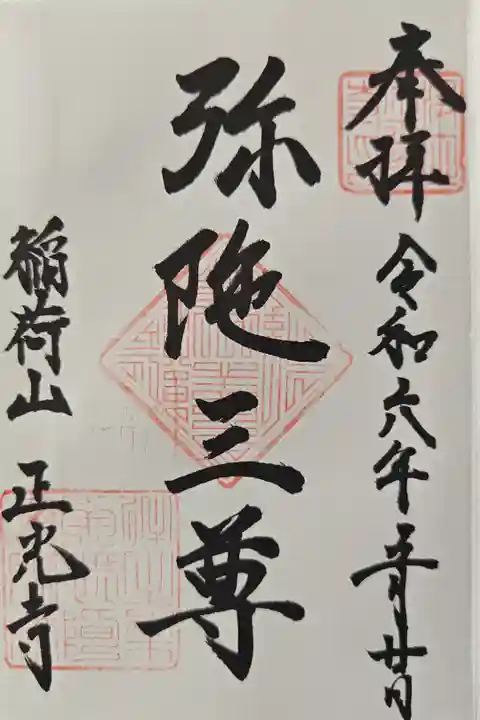 奉拝 令和六年五月廿日
弥陀三尊
稲荷山 正光寺